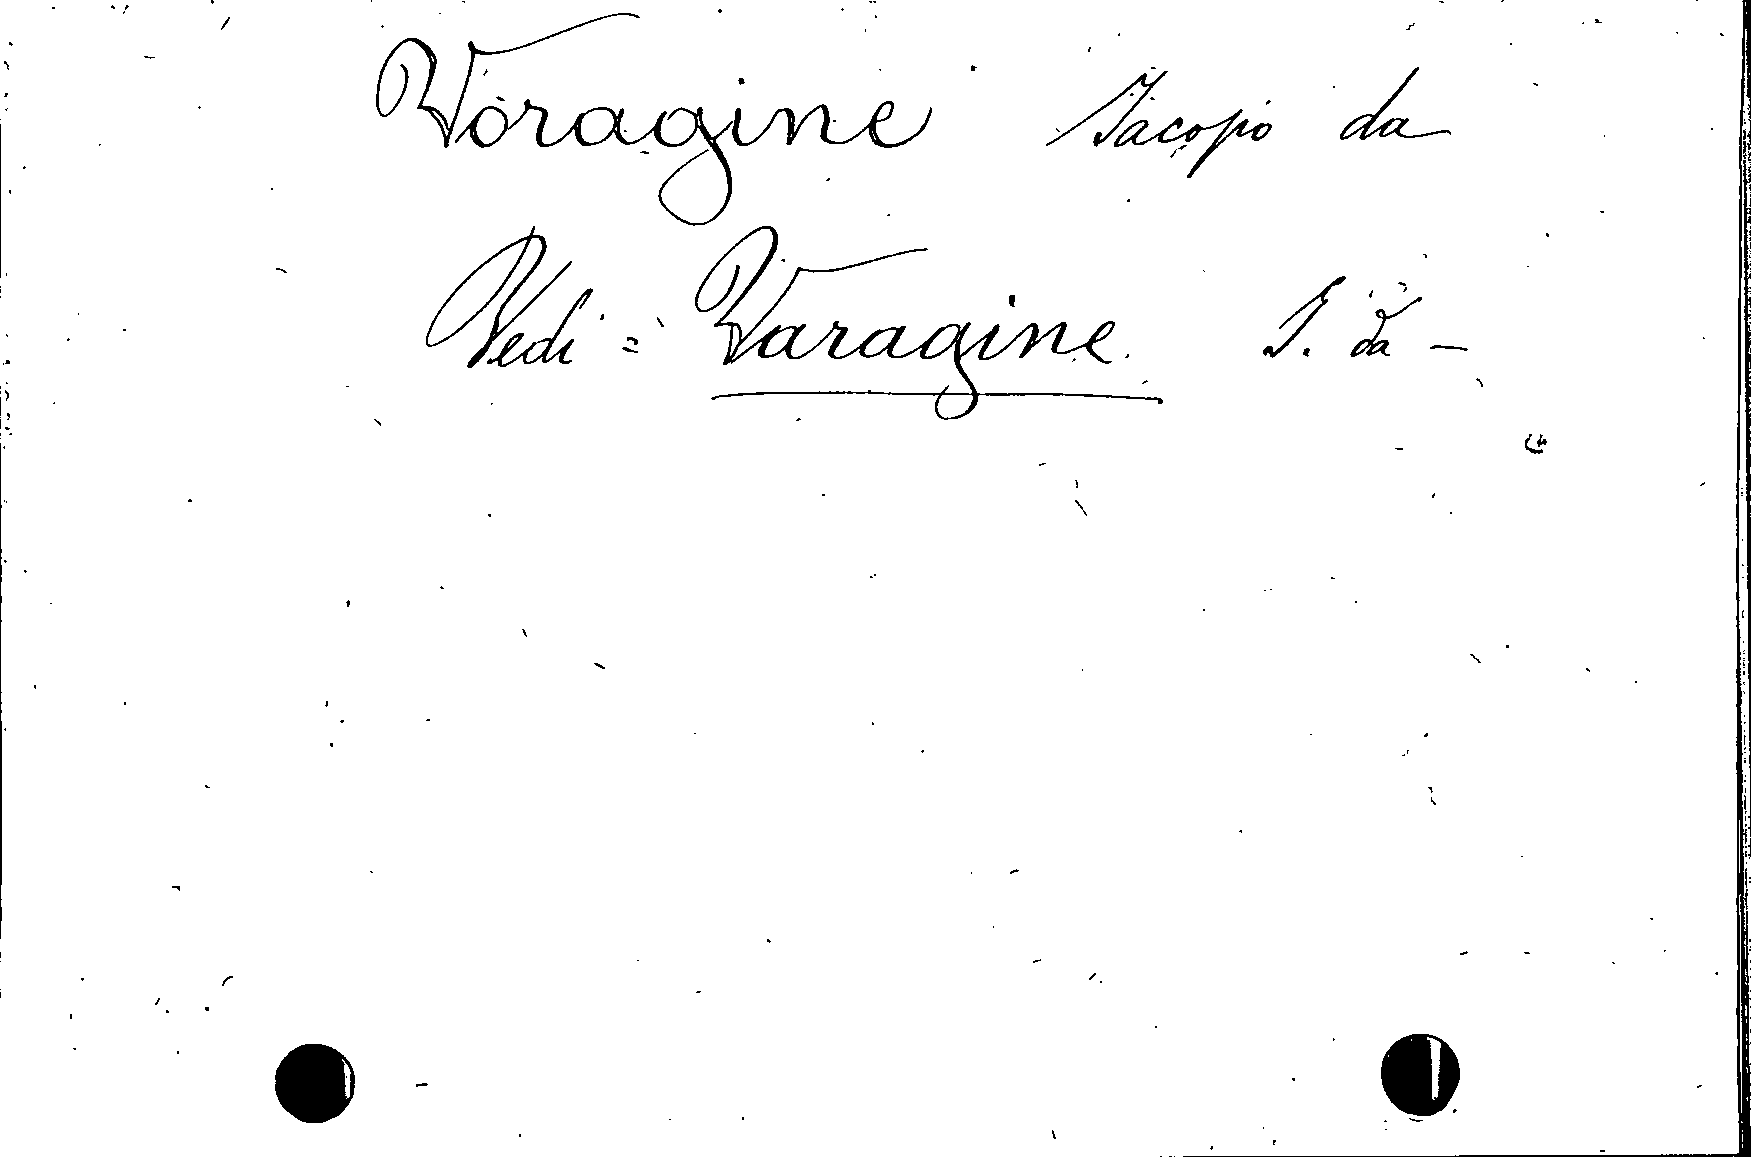 Voragine Jacopo da
Vedi = Varagine J. da —